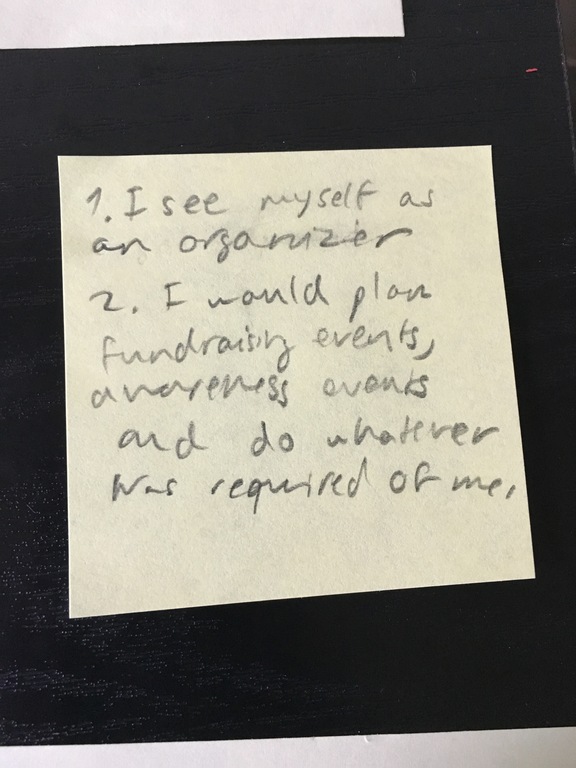 1. I see myself as
an organizer
2. I would plan
fundraising events,
awareness events
and do whatever
was required of me.